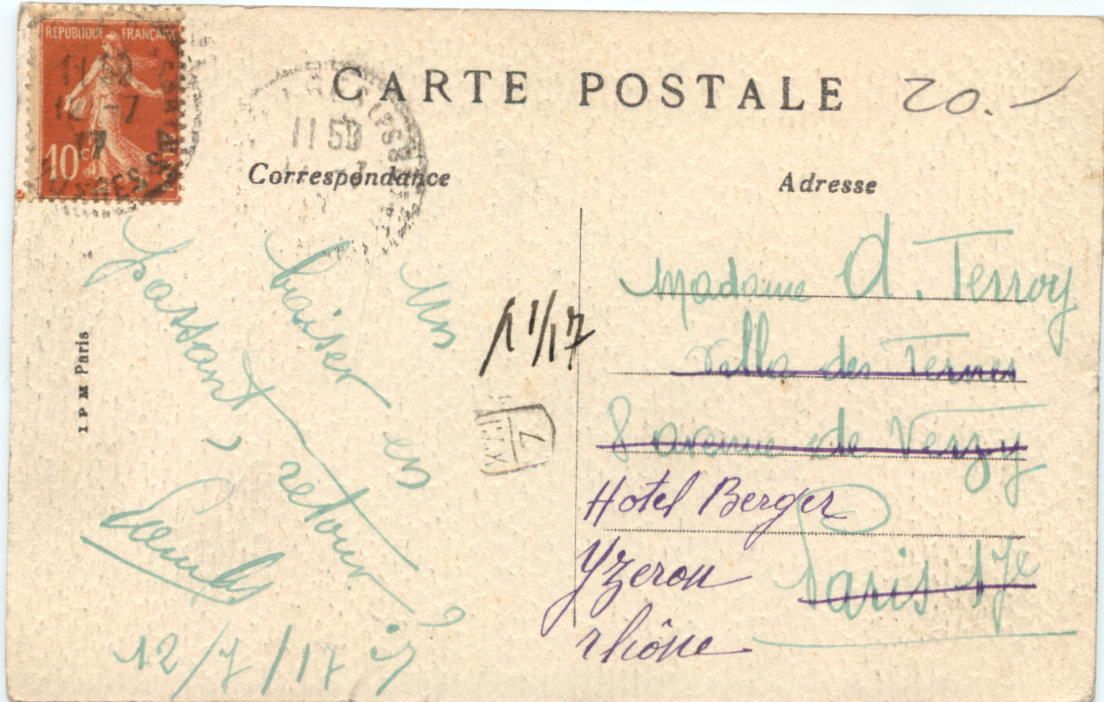 RÉPUBLIQUE FRANÇAISE
10c
11 50
12 -7
17
11 50
CARTE POSTALE
20.-
Correspondance
Adresse
I P M Paris
Un
baiser en
passant,
retour
12/7/17
11/17
Madame A. Terroy
Villa des Ternes
8 avenue de Verzy
Paris 17e
Hotel Berger
Yzeron
rhône